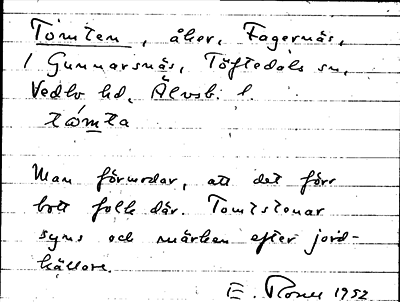 Tomten, åker, Fagernäs,
1 Gunnarsnäs, Töftedals sn,
Vedbo hd, Älvsb. l.
tómta
Man förmodar, att det förr
bott folk där. Tomtstenar
syns och märken efter jord-
källare.
E. 1952